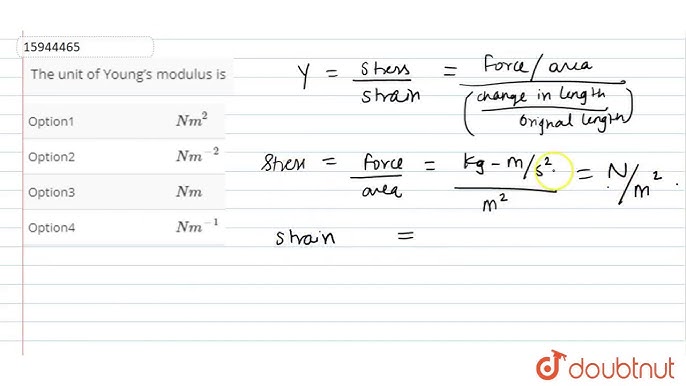 15944465
The unit of Young's modulus is
Option1 Nm²
Option2 Nm⁻²
Option3 Nm
Option4 Nm⁻¹
Y = stress/strain = Force/area / (change in length/original length)
Stress = force/area = kg-m/s²/m² = N/m².
strain =
doubtnut